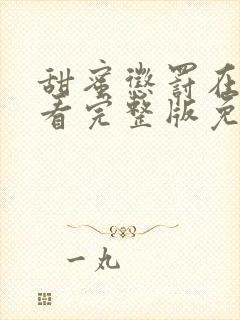 甜蜜惩罚在
看完整版免
一丸